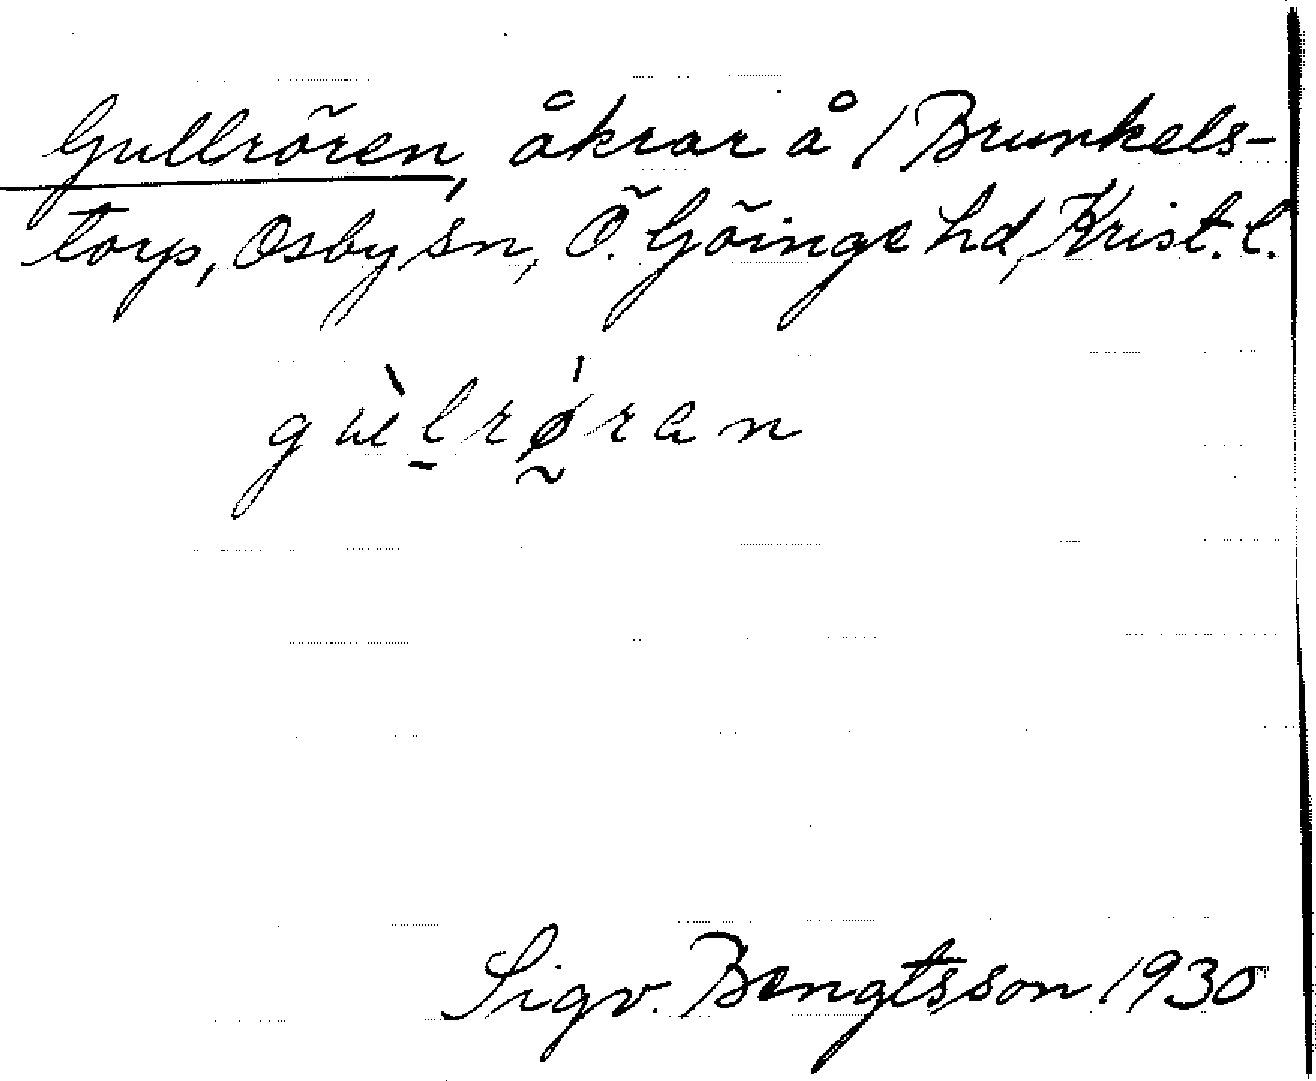 Gullrören, åkrar å /Brunkels-
torp, Osby sn, Ö. Göinge hd, Krist. l.
gùlrǿ̰ran
Sigv. Bengtsson 1930